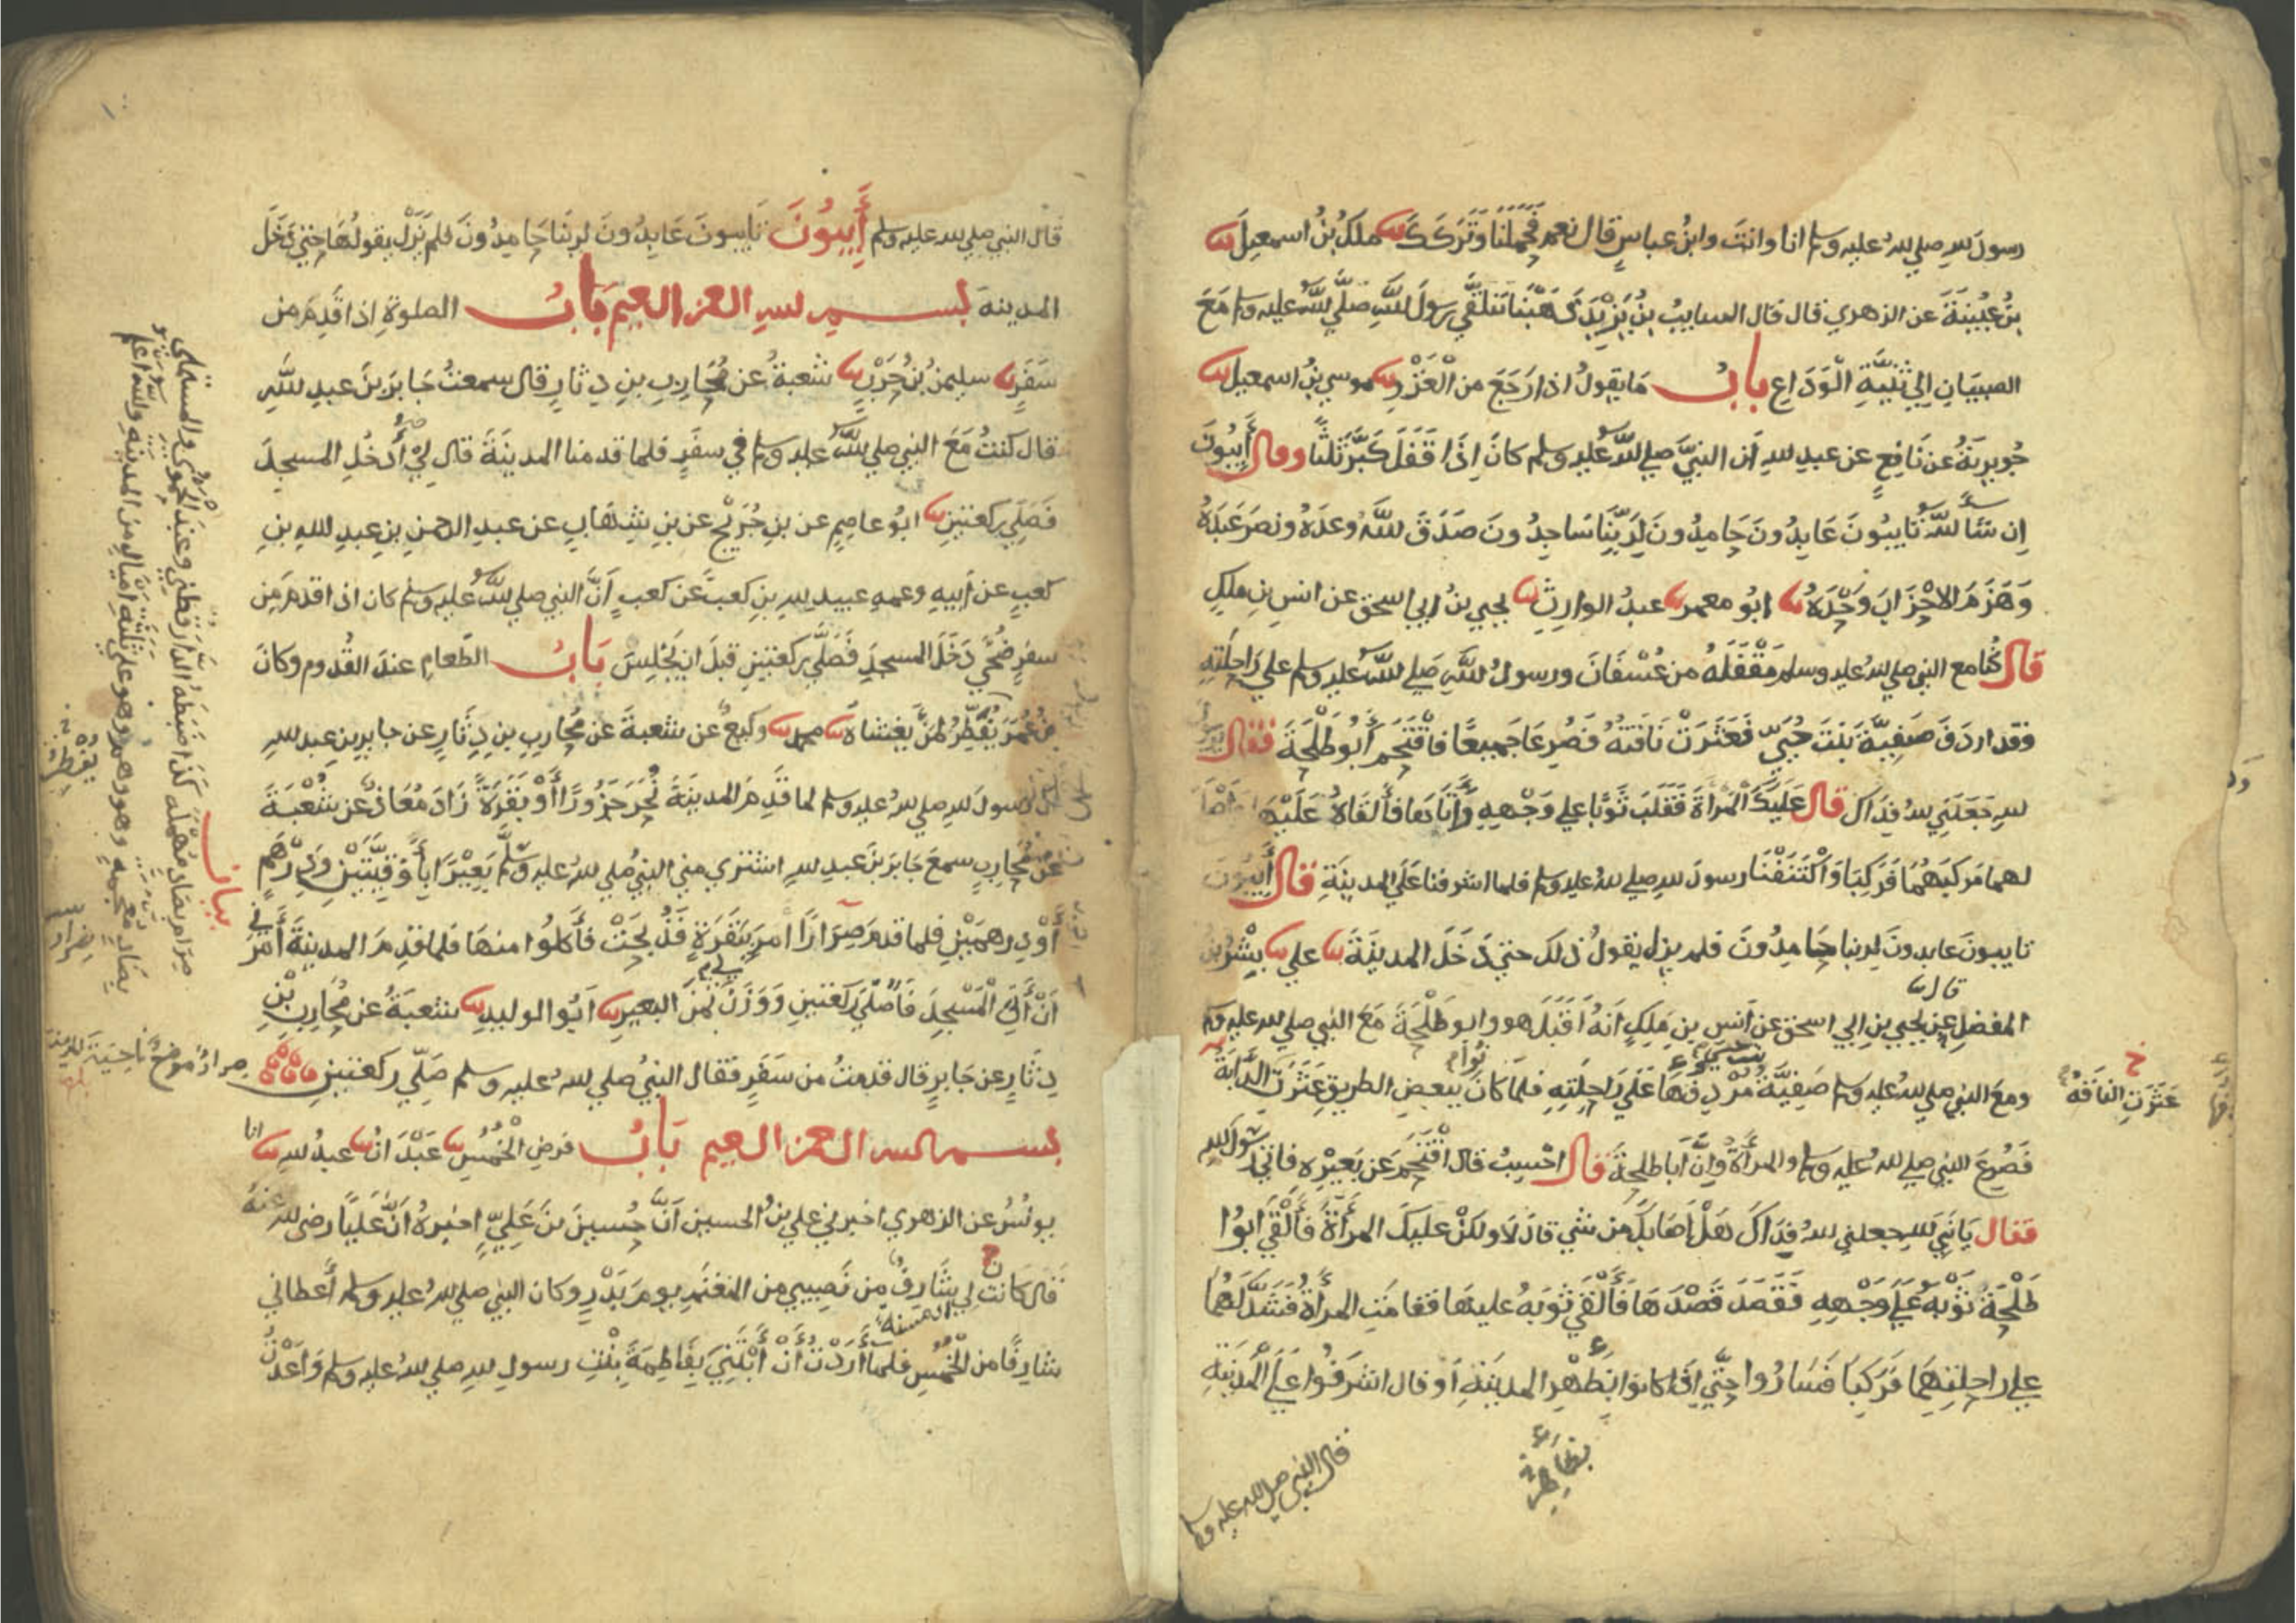 رسول لله صلي لله عليه وسلم انا وانت وابن عباس قال نعم فحملنا وتركك ثنا ملك بن اسمعيل ثنا
بن عيينة عن الزهري قال قال السايب بن يزيد ذهبنا نتلقي رسول لله صلي لله عليه وسلم مع
الصبيان الي ثنية الوداع باب ما يقول اذا رجع من الغزو ثنا موسي بن اسمعيل ثنا
جويرية عن نافع عن عبد لله ان النبي صلي لله عليه وسلم كان اذا قفل كبر ثلثا وقال آيبون
ان شا لله تايبون عابدون حامدون لربنا ساجدون صدق لله وعده ونصر عبده
وهزم الاحزاب وحده ثنا ابو معمر ثنا عبد الوارث ثنا يحيي بن ابي اسحق عن انس بن ملك
قال كنا مع النبي صلي لله عليه وسلم مقفله من عسفان ورسول لله صلي لله عليه وسلم علي راحلته
وقد اردف صفية بنت حيي فعثرت ناقته فصرعا جميعا فاقتحم ابو طلحة فقال
لله جعلني لله فداك قال عليك المراة فقلب ثوبا علي وجهه واتاها فالقاه عليها واصلح
لهما مركبهما فركبا واكتنفنا رسول لله صلي لله عليه وسلم فلما اشرفنا علي المدينة قال آيبون
تايبون عابدون لربنا حامدون فلم يزل يقول ذلك حتي دخل المدينة ثنا علي ثنا بشر بن
المفضل عن يحيي بن ابي اسحق عن انس بن ملك انه اقبل هو وابو طلحة مع النبي صلي لله عليه وسلم
ومع النبي صلي لله عليه وسلم صفية مردفها علي راحلته فلما كان ببعض الطريق عثرت الدابة
عثرت الناقة
فصرع النبي صلي لله عليه وسلم والمراة وان ابا طلحة قال احسب قال اقتحم عن بعيره فاتي رسول لله
فقال يا نبي لله جعلني لله فداك هل اصابك من شي قال لا ولكن عليك المراة فالقي ابوا
طلحة ثوبه علي وجهه فقصد قصدها فالقي ثوبه عليها فقامت المراة فشد لهما
علي راحلتهما فركبا فساروا حتي اذا كانوا بظهر المدينة او قال اشرفوا علي المدينة
قال النبي صلي لله عليه وسلم
قال النبي صلي لله عليه وسلم آيبون تايبون عابدون لربنا حامدون فلم يزل يقولها حتي دخل
المدينة بسم لله الرحمن الرحيم باب الصلوة اذا قدم من
سفر ثنا سليمن بن حرب ثنا شعبة عن محارب بن دثار قال سمعت جابر بن عبد لله
قال كنت مع النبي صلي لله عليه وسلم في سفر فلما قدمنا المدينة قال لي ادخل المسجد
فصلي ركعتين ثنا ابو عاصم عن بن جريج عن بن شهاب عن عبد الرحمن بن عبد لله بن
كعب عن ابيه وعمه عبيد لله بن كعب عن كعب ان النبي صلي لله عليه وسلم كان اذا قدم من
سفر ضحي دخل المسجد فصلي ركعتين قبل ان يجلس باب الطعام عند القدوم وكان
بن عمر يفطر لمن يغشاه ثنا محمد ثنا وكيع عن شعبة عن محارب بن دثار عن جابر بن عبد لله
ان رسول لله صلي لله عليه وسلم لما قدم المدينة نحر جزورا او بقرة زاد معاذ عن شعبة
عن محارب سمع جابر بن عبد لله اشتري مني النبي صلي لله عليه وسلم بعيرا باوقيتين ودرهم
او درهمين فلما قدم صرارا امر ببقرة فذبحت فاكلوا منها فلما قدم المدينة امرني
ان آتي المسجد فاصلي ركعتين ووزن لي ثمن البعير ثنا ابوا الوليد ثنا شعبة عن محارب بن
دثار عن جابر قال قدمت من سفر فقال النبي صلي لله عليه وسلم صلي ركعتين
صرار موضع ناحية
بسم لله الرحمن الرحيم باب فرض الخمس ثنا عبدان ثنا عبد لله انا
يونس عن الزهري اخبرني علي بن الحسين ان حسين بن علي اخبره ان عليا رضي لله عنه
قال كانت لي شارف من نصيبي من المغنم يوم بدر وكان النبي صلي لله عليه وسلم اعطاني
شارفا من الخمس فلما اردت ان ابتني بفاطمة بنت رسول لله صلي لله عليه وسلم واعدت